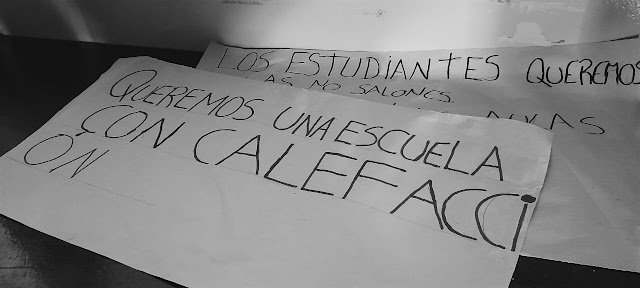 LOS ESTUDIANTES QUEREMOS
NO SALONES.
QUEREMOS UNA ESCUELA
CON CALEFACCI
ÓN